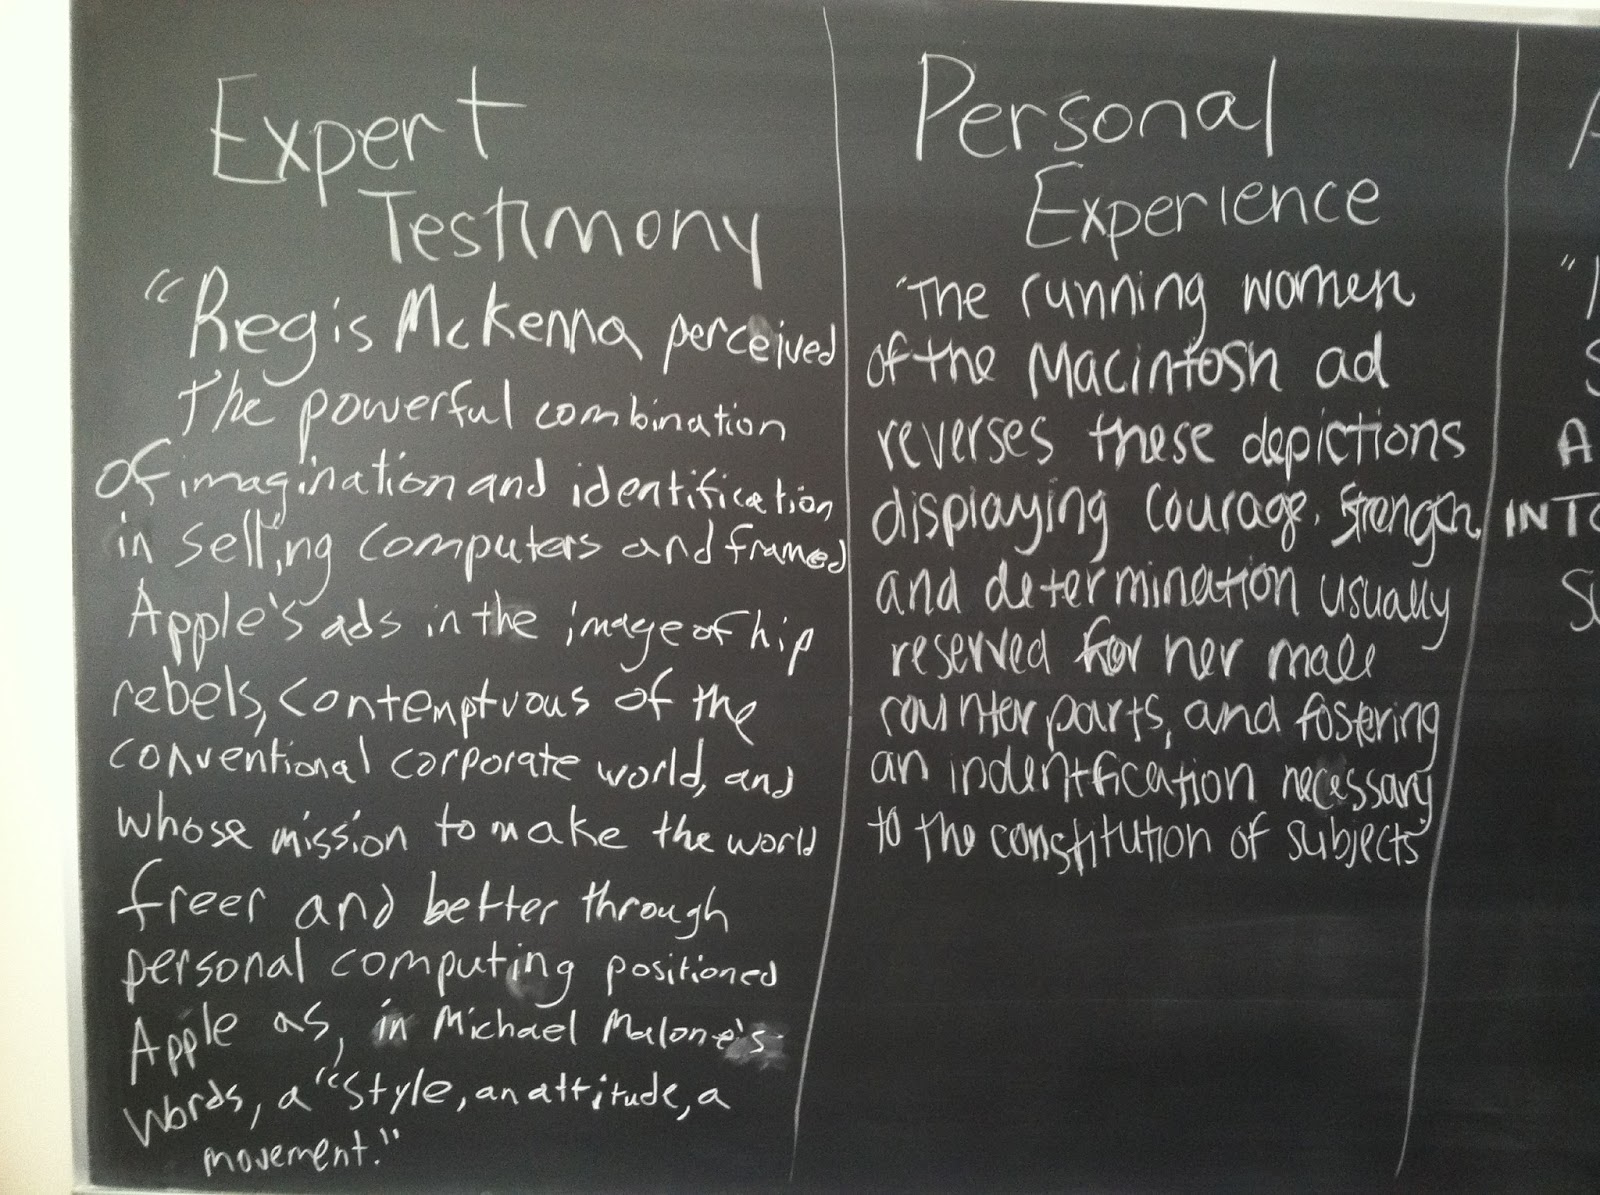 Expert
Testimony
"Regis McKenna perceived
the powerful combination
of imagination and identification
in selling computers and framed
Apple's ads in the image of hip
rebels, contemptuous of the
conventional corporate world, and
whose mission to make the world
freer and better through
personal computing positioned
Apple as, in Michael Malone's
words, a "style, an attitude, a
movement."
Personal
Experience
"The running women
of the Macintosh ad
reverses these depictions
displaying courage, strength,
and determination usually
reserved for her male
counterparts, and fostering
an indentfication necessary
to the constitution of subjects"
A
INTO